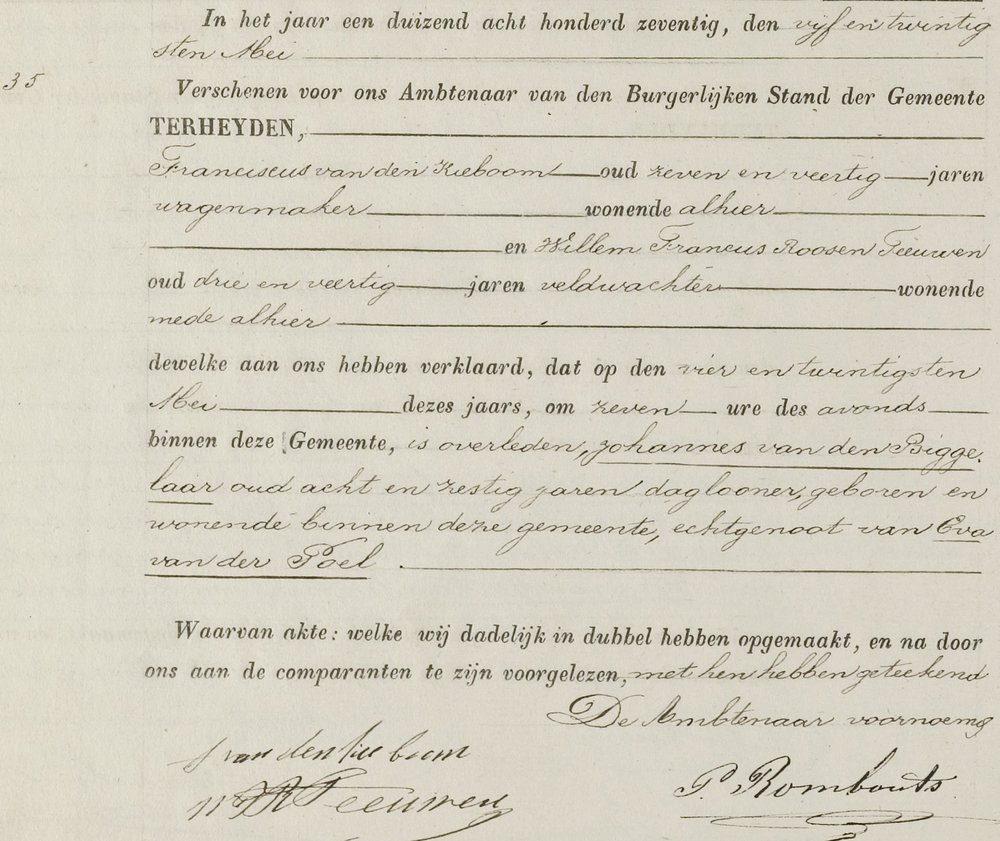 In het jaar een duizend acht honderd zeventig, den vijf en twintig
sten Mei
35
Verschenen voor ons Ambtenaar van den Burgerlijken Stand der Gemeente
TERHEYDEN,
Franciscus van den Kieboom oud zeven en veertig jaren
wagenmaker wonende alhier
en Willem Francus Roosen Teeuwen
oud drie en veertig jaren veldwachter wonende
mede alhier
dewelke aan ons hebben verklaard, dat op den vier en twintigsten
Mei dezes jaars, om zeven ure des avonds
binnen deze Gemeente, is overleden, Johannes van den Bigge-
laar oud acht en zestig jaren daglooner, geboren en
wonende binnen deze gemeente, echtgenoot van Eva
van der Poel.
Waarvan akte: welke wij dadelijk in dubbel hebben opgemaakt, en na door
ons aan de comparanten te zijn voorgelezen, met hen hebben geteekend
De Ambtenaar voornoemd
f van den kie boom
WFR Teeuwen
P. Rombouts